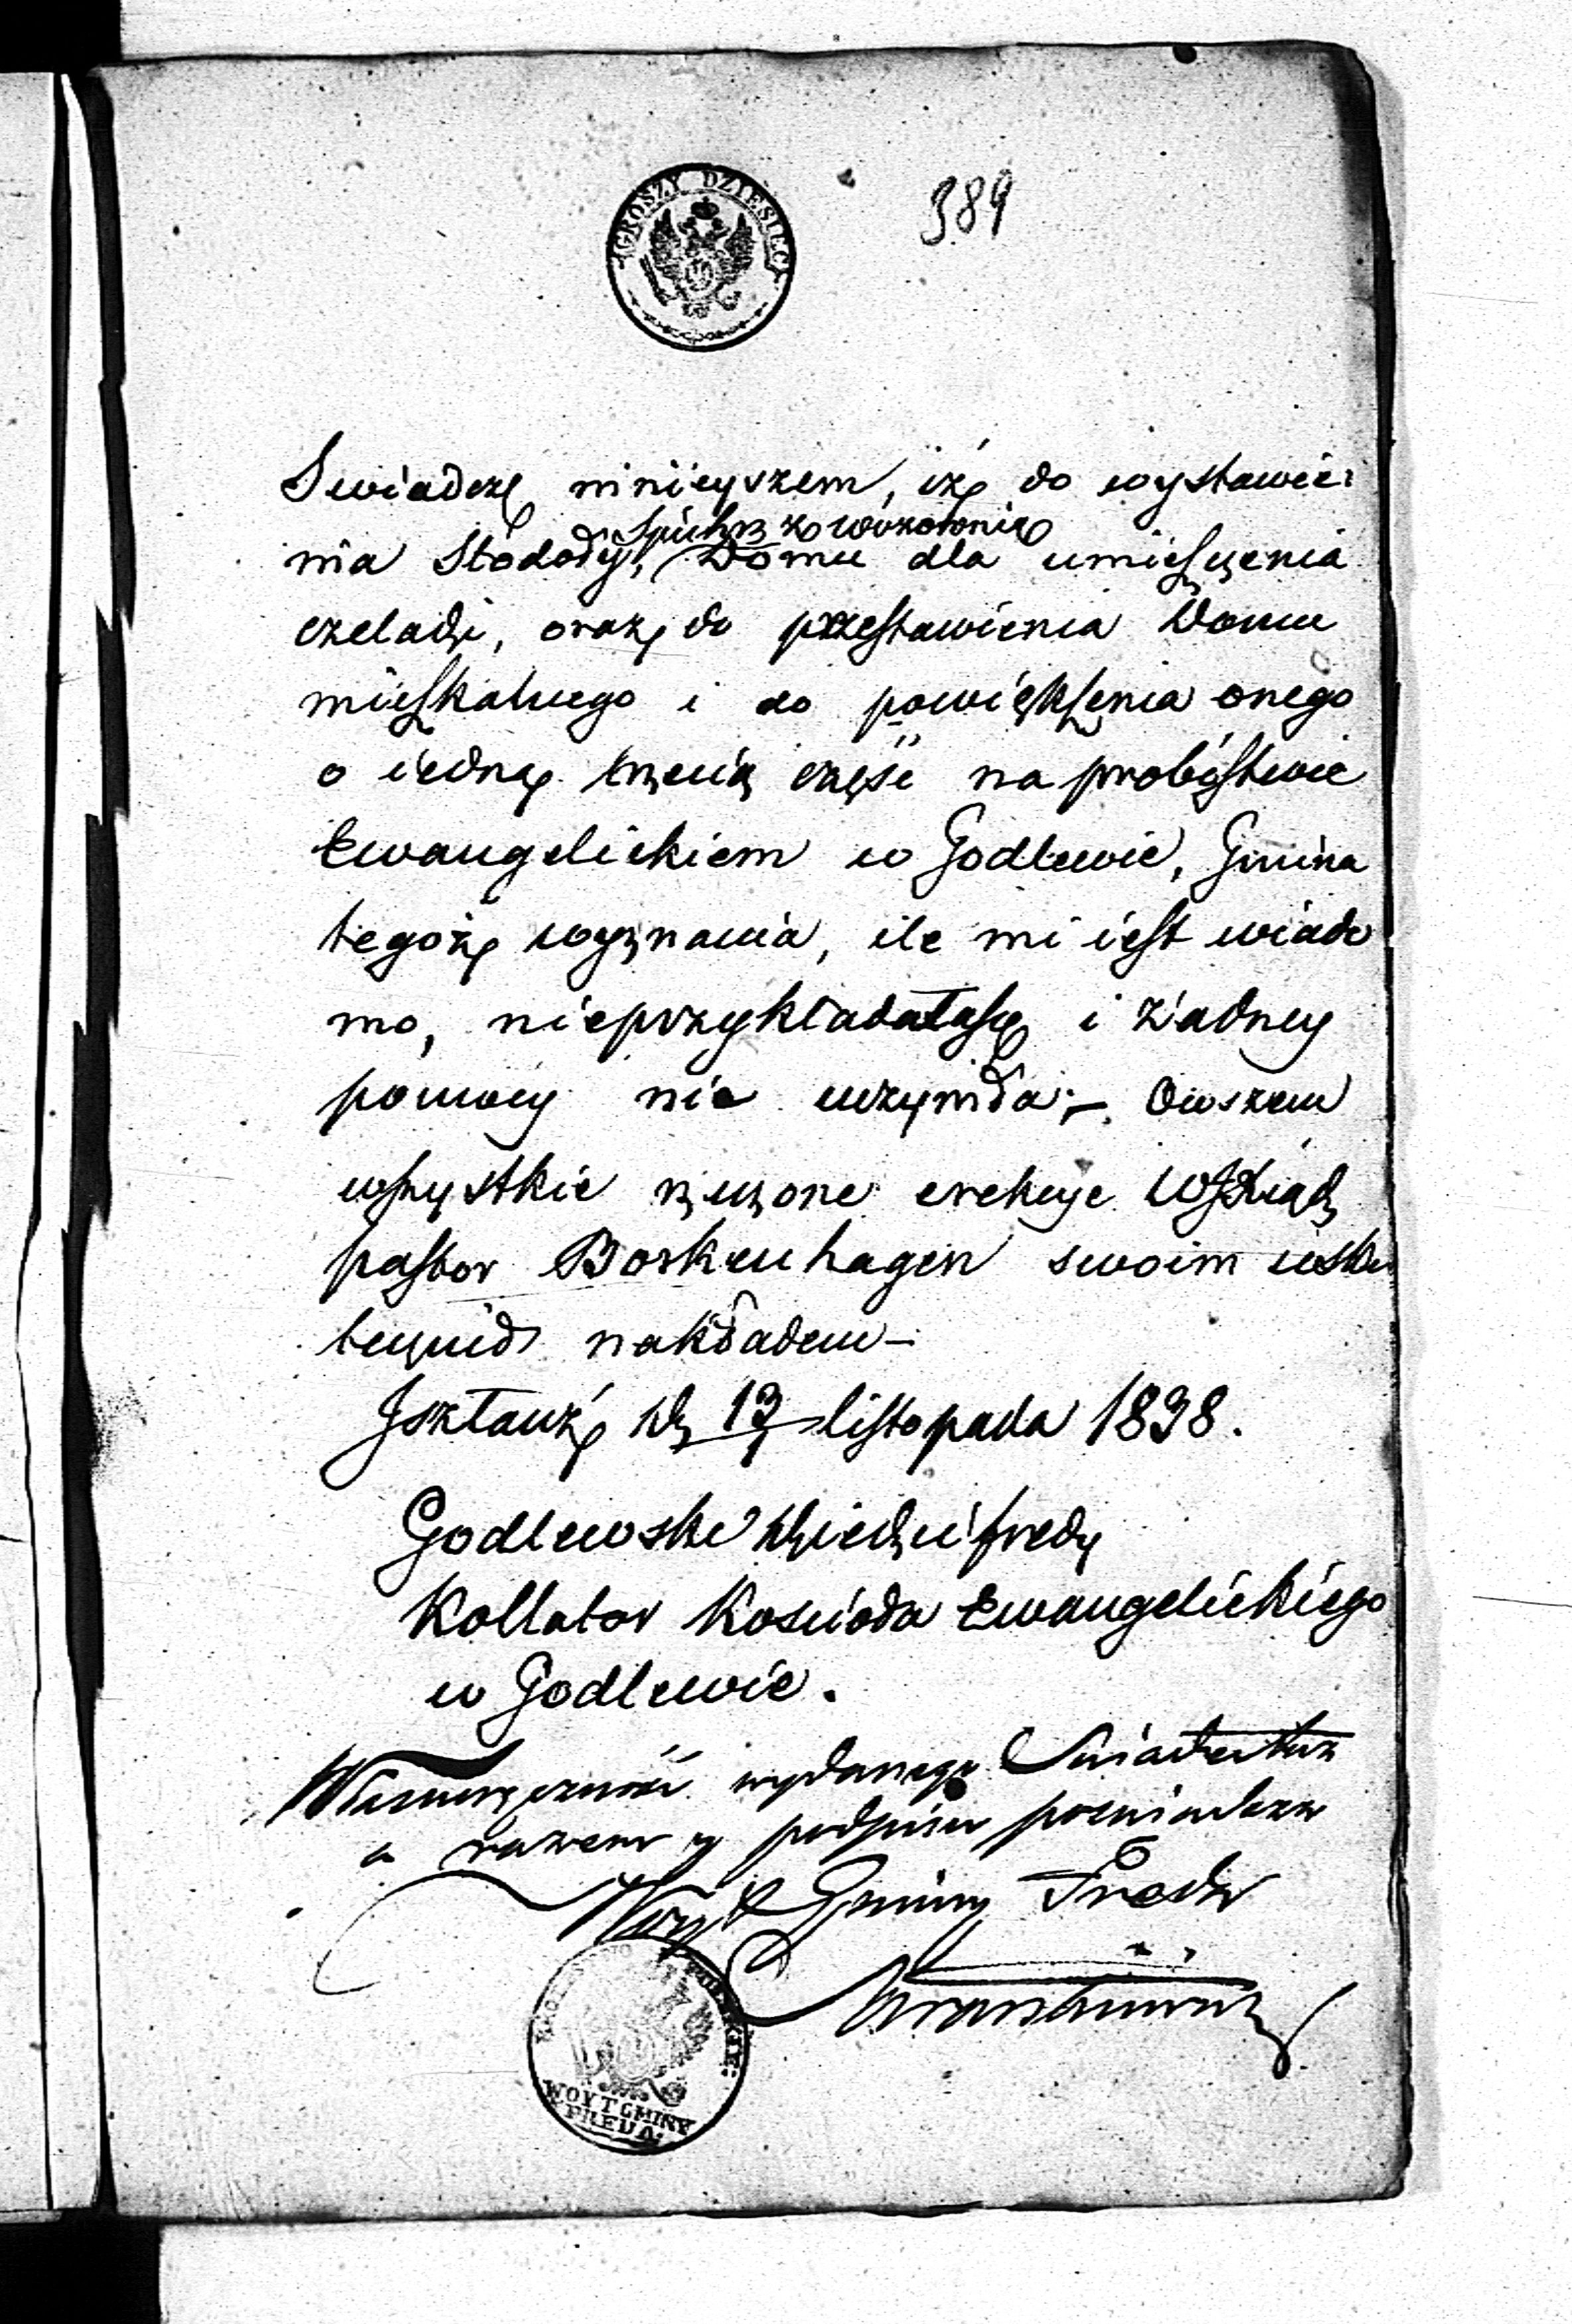 GROSZY DZIESIĘĆ
389
Swiadczę ninieyszem, iż do wystawie:
Spichrz z wozownią
nia Stodoły, Domu dla umieszczenia
czeladzi, oraz do przestawienia Domu
mieszkalnego i do powiększenia onego
o iedną trzecią część na probóstwie
Ewangelickiem w Godlewie, Gmina
tegoż wyznania, ile mi iest wiado
mo, nieprzykładałasię i żadney
pomocy nie uczyniła; – Owszem
wszystkie rzeczone erekcye WJXiądz
pastor Borkenhagen swoim usku
tecznił nakładem –
Isztauż d. 13 listopada 1838.
Godlewski Dziedzic fredy
Kollator Kościoła Ewangelickiego
w Godlewie.
Własnoręczność wydanego Swiadectwa
a razem y podpisu poswiadcza
Woyt Gminy Freda
WOYT GMINY
FREDA.